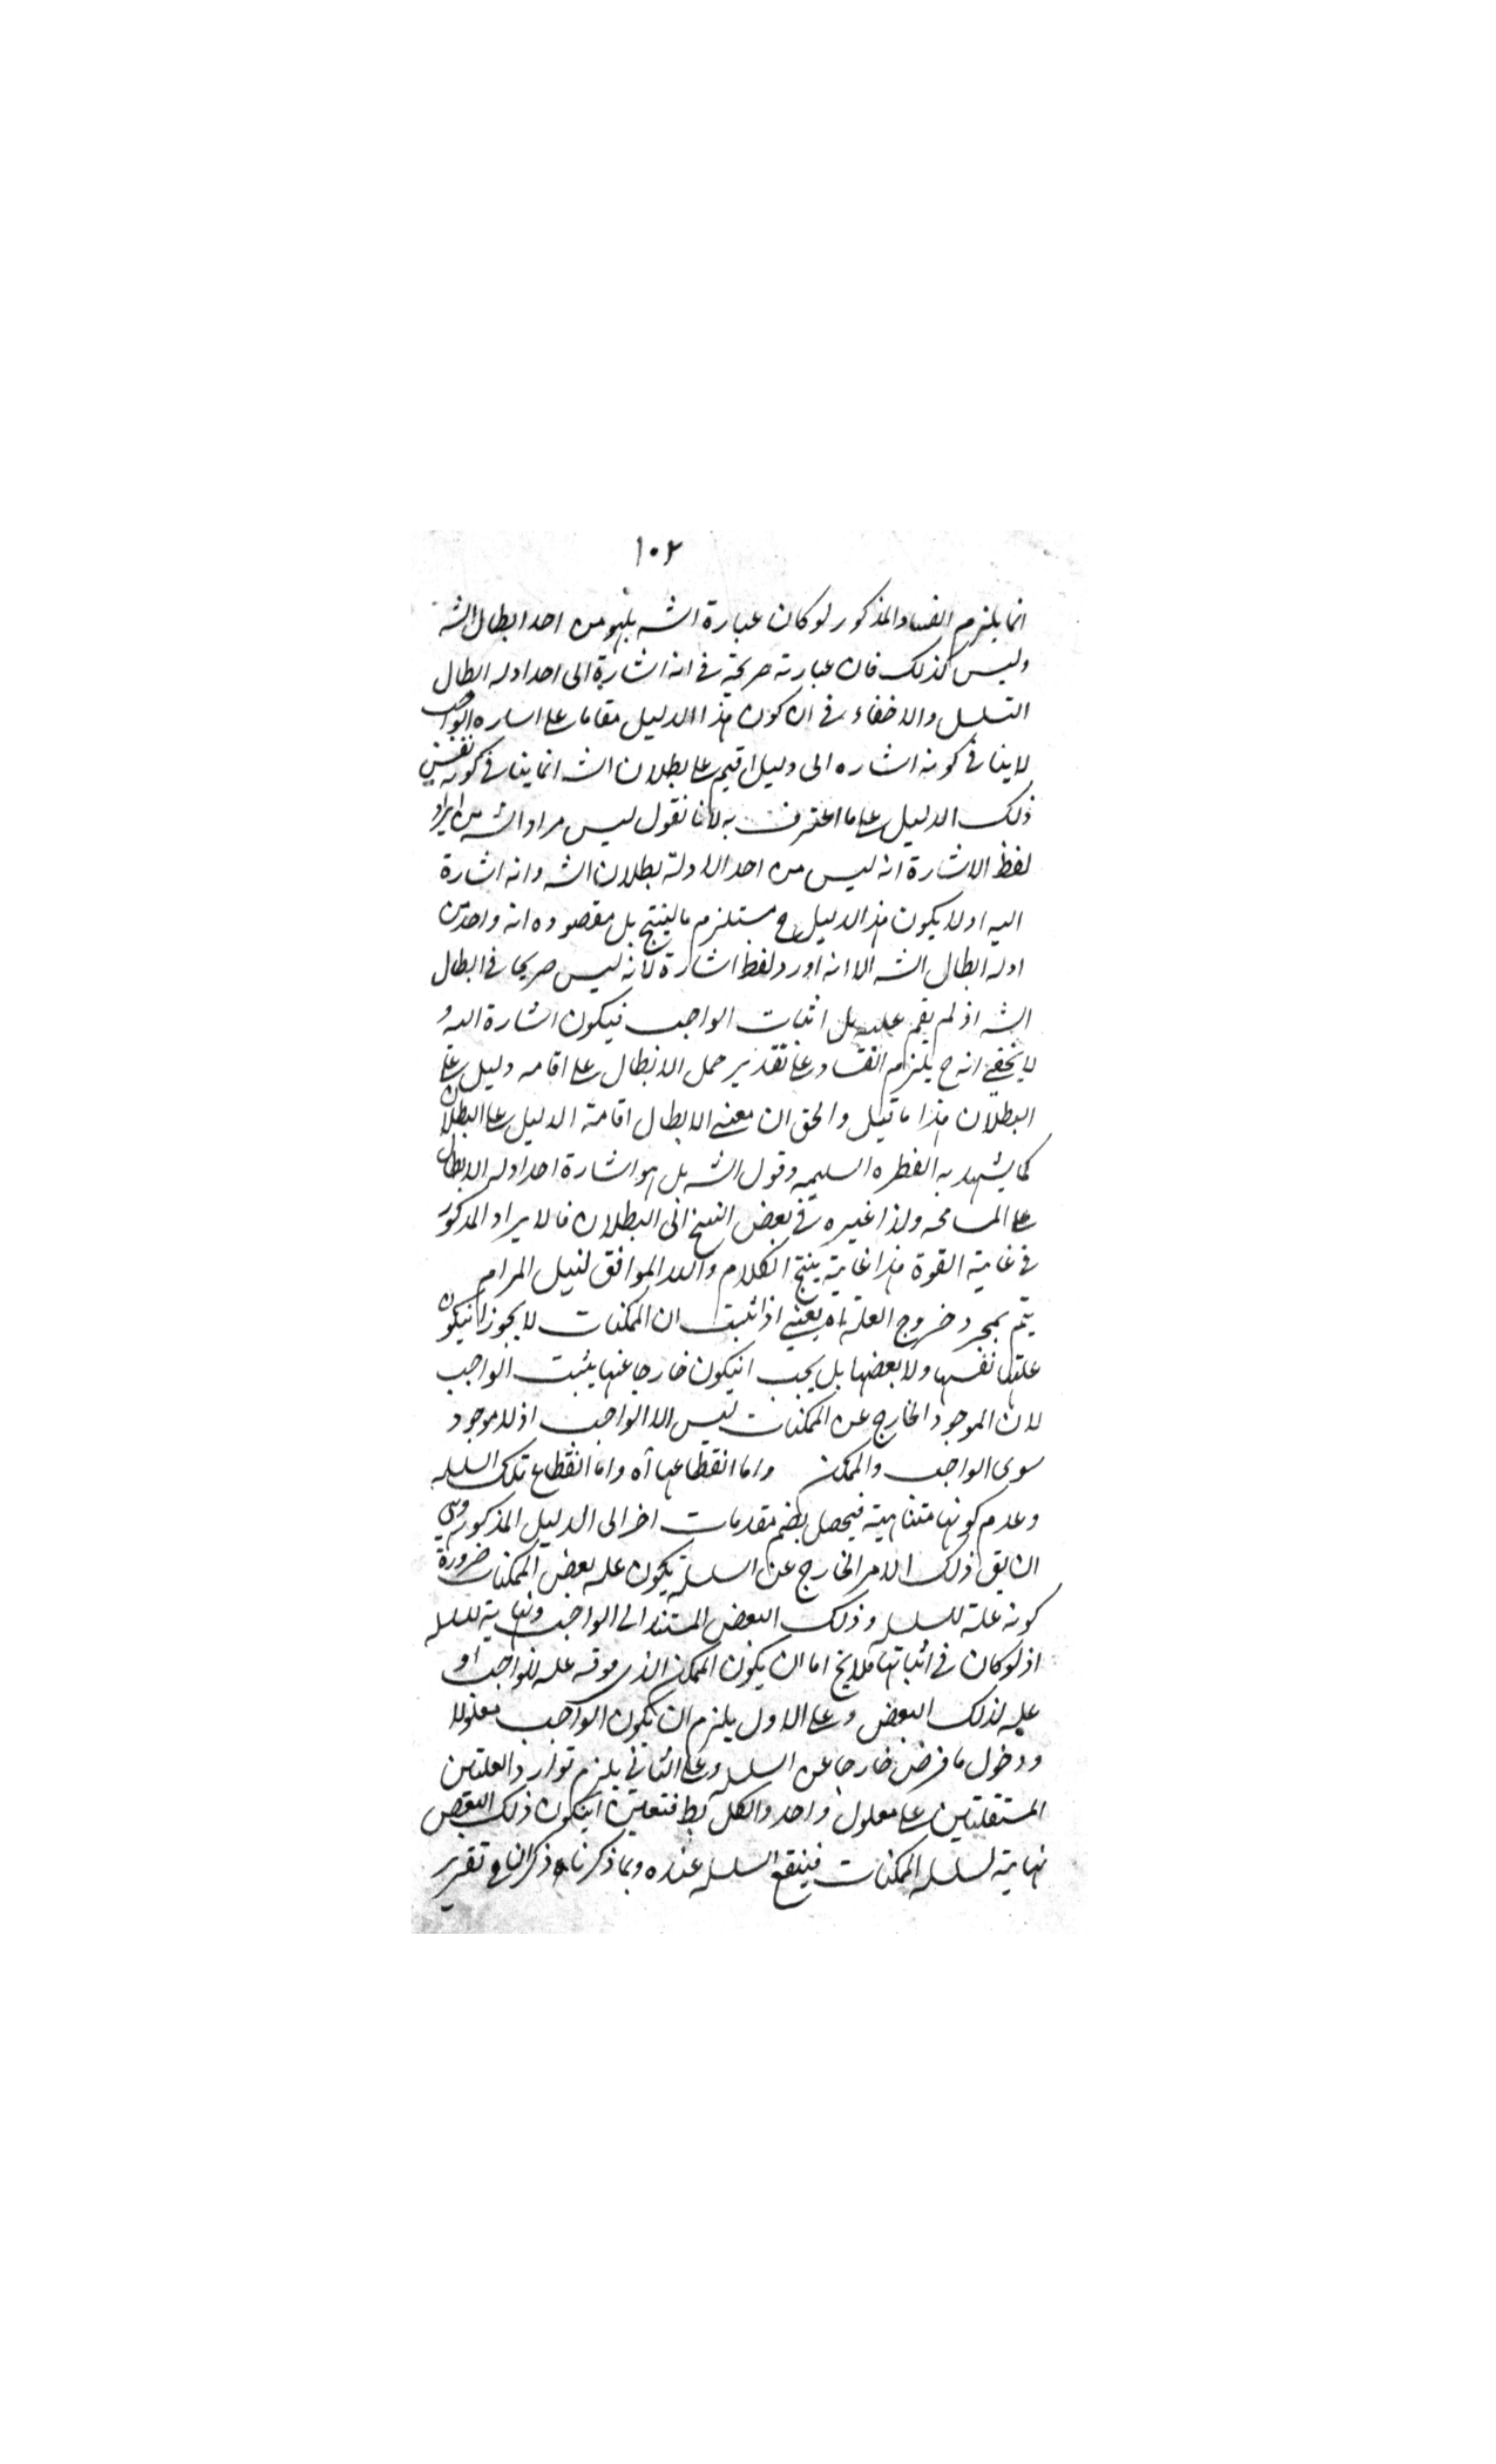 ١٠٢
انما يلزم الفساد المذكور لو كان عبارة الشه بل هو من احد ابطال الشه
وليس كذلك فان عبارته صريحة في انه اشارة الى احد ادله ابطال
التسلسل ولا خفاء في ان كون هذا الدليل مقاما على الواجب
لا ينافي كونه اشاره الى دليل اقيم على بطلان الشه انما ينافي كونه نفس
ذلك الدليل على ما اعترف به لانا نقول ليس مراد الشه من ايراد
لفظ الاشارة انه ليس من احد الادلة بطلان الشه وانه اشارة
اليه اولا يكون هذا الدليل مستلزم ما لينتج بل مقصوده انه واحد من
ادله ابطال الشه الا انه اورد لفظ اشارة لانه ليس صريحا في ابطال
الشه اذ لم يقم عليه بل اثبات الواجب فيكون اشارة اليه و
لا يخفى انه ح يلزم الفساد على تقدير حمل الابطال على اقامه دليل على
البطلان هذا ما قيل والحق ان معنى الابطال اقامة الدليل على البطلان
كما يشهد به الفطره السليمه وقول الشه بل هو اشارة احد ادله الابطال
على المسامحه ولذا غيره في بعض النسخ الى البطلان فالايراد المذكور
في غاية القوة هذا غاية ينتج الكلام والله الموافق لنيل المرام
يتم بمجرد خروج العلة اه يعني اذا ثبت ان الممكنات لا يجوز انيكون
علتها نفسها ولا بعضها بل يجب انيكون خارجا عنها يثبت الواجب
لان الموجود الخارج عن الممكنات ليس الا الواجب اذ لا موجود
سوى الواجب والممكن واما انقطاعها آه واما انقطاع تلك السلسله
وعدم كونها متناهية فيحصل بضم مقدمات اخر الى الدليل المذكور وهي
ان يق ذلك الامر الخارج عن السلسله يكون عله بعض الممكنات ضرورة
كونه علة للسلسله وذلك البعض المستند الى الواجب ونهاية للسلسله
اذ لو كان في اثباتها فلا يخ اما ان يكون الممكن الذي فوقه عله للواجب او
عله لذلك البعض وعلى الاول يلزم ان يكون الواجب معلولا
ودخول ما فرض خارجا عن السلسله وعلى الثاني يلزم توارد العلتين
المستقلتين على معلول واحد والكل بط فتعين انيكون ذلك البعض
نهاية لسلسله الممكنات فينقع السلسله عنده وبما ذكرنا ذكر ان في تقرير